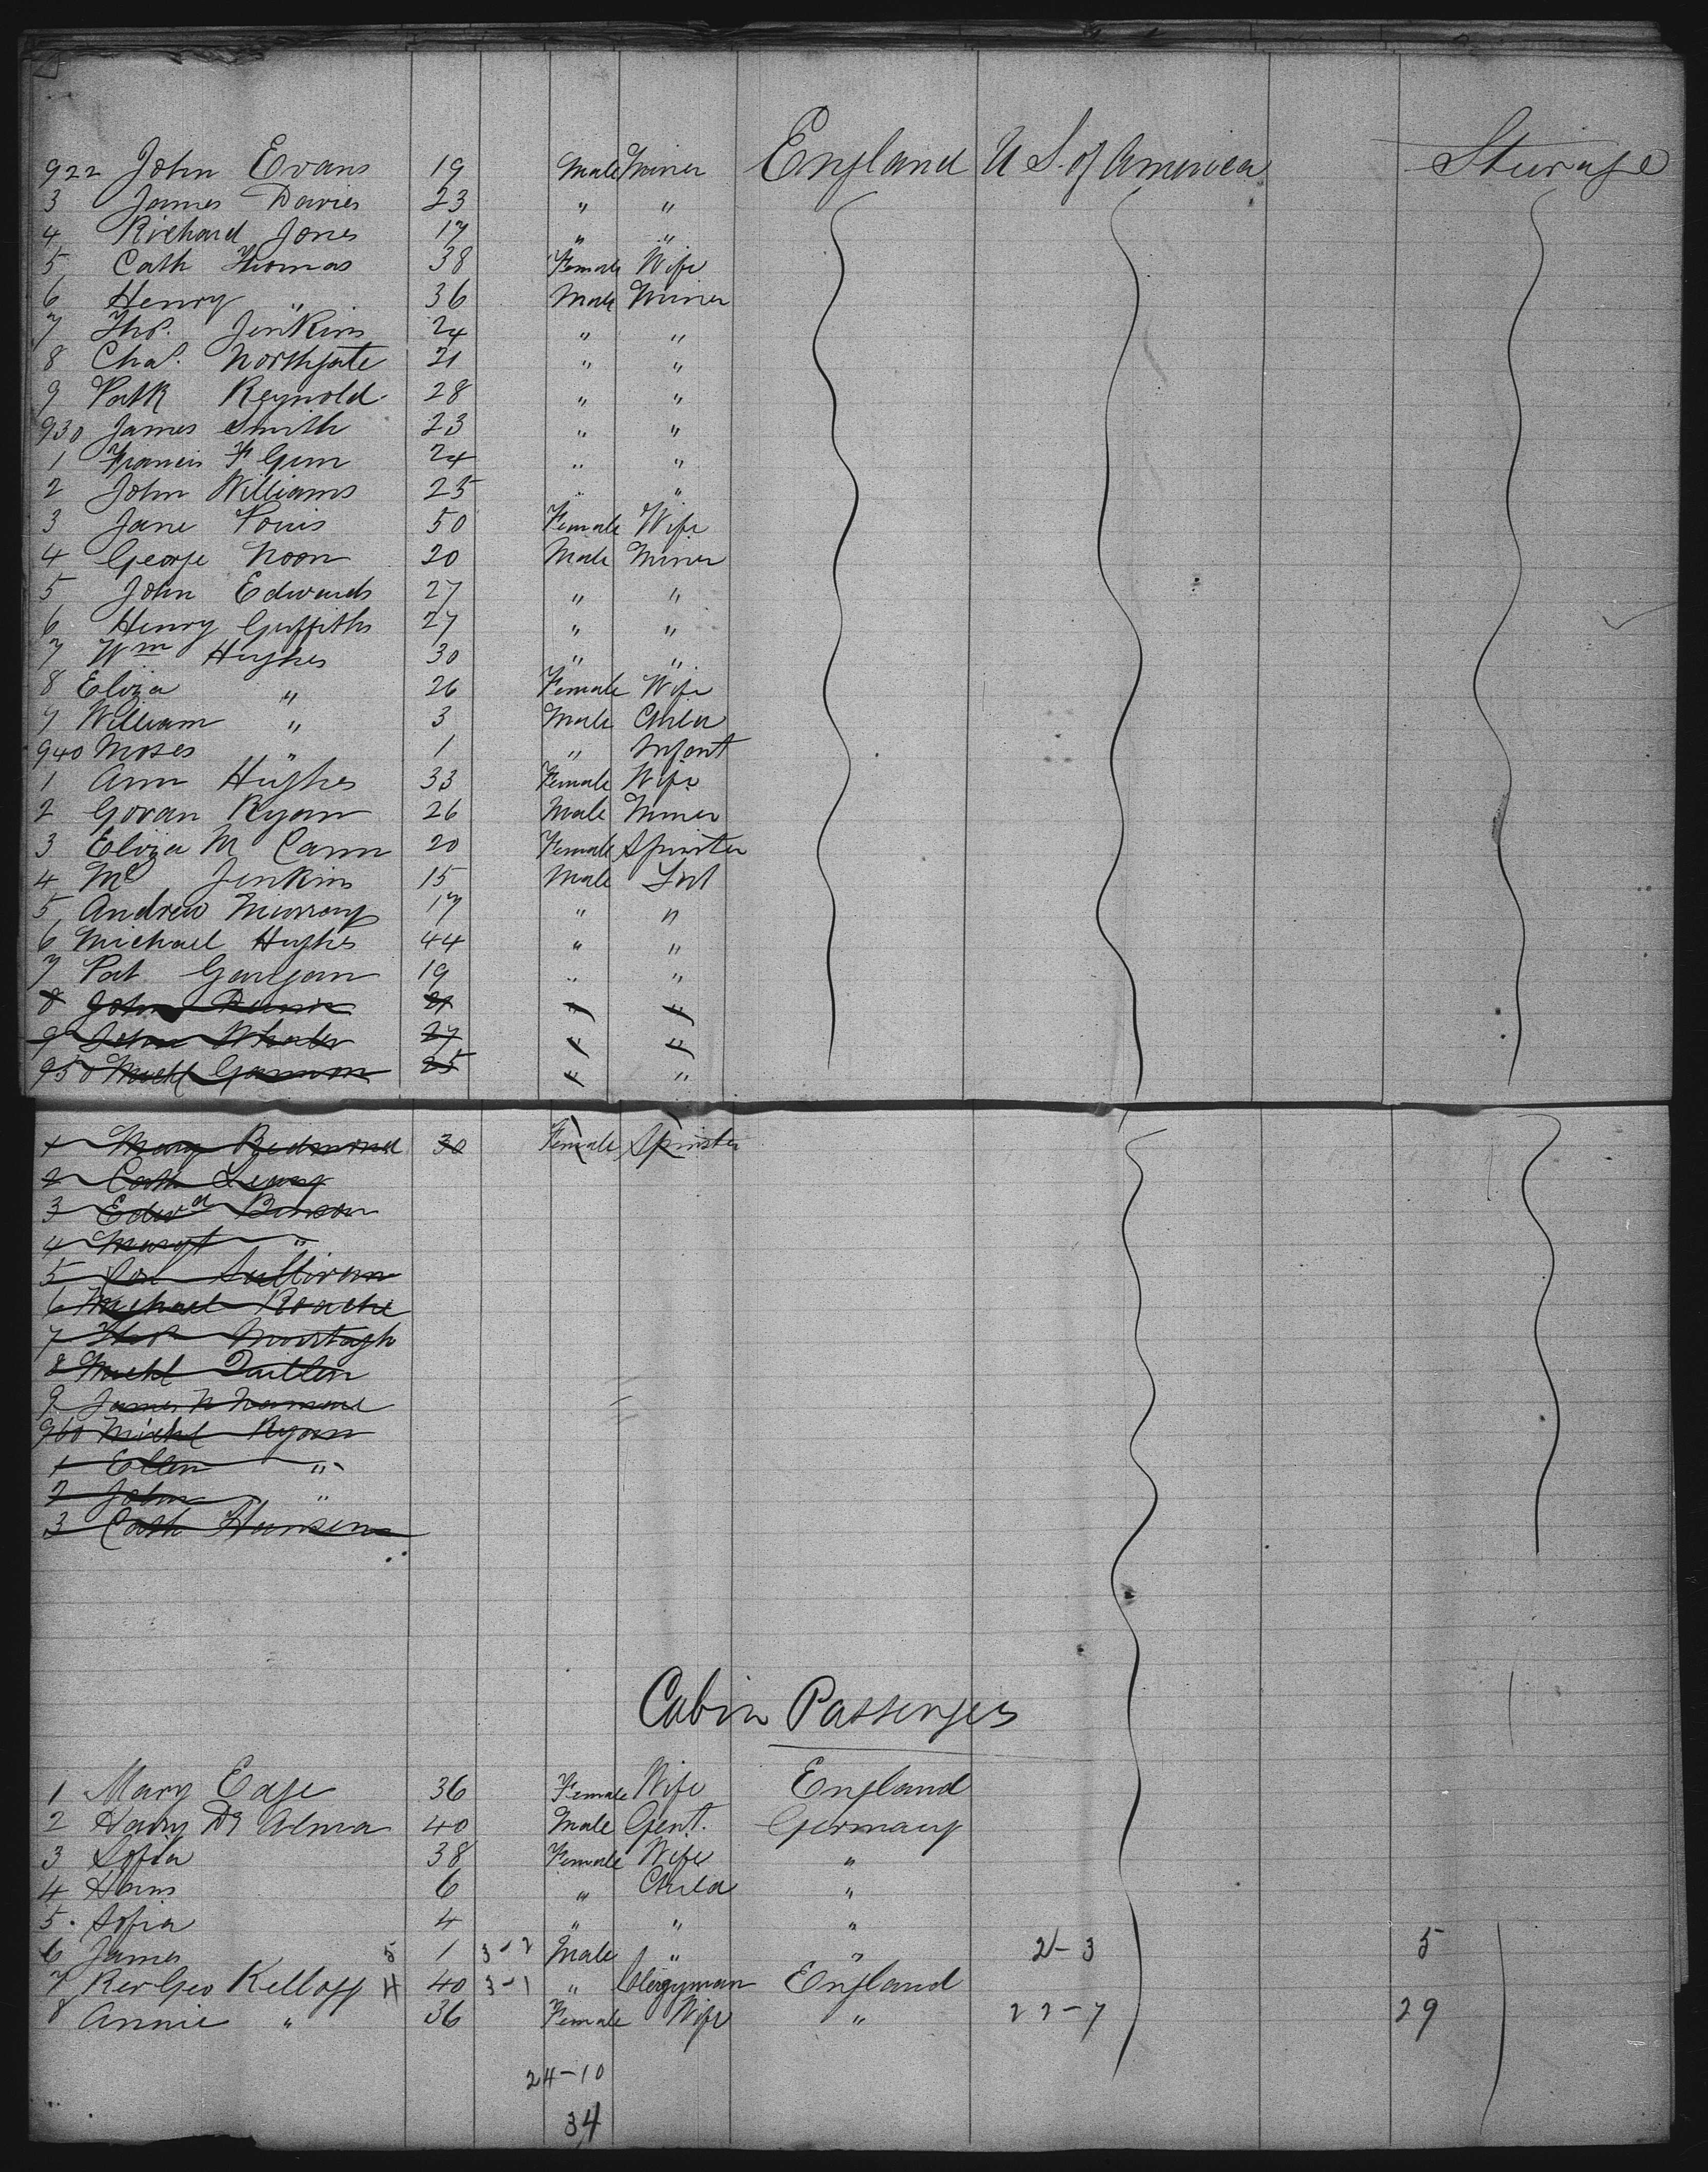 922 John Evans 19 Male Miner England U S. of America Sturage
3 James Davies 23 " "
4 Richard Jones 17 " "
5 Cath Thomas 38 Female Wife
6 Henry " 36 Male Miner
7 Thos. Jenkins 24 " "
8 Chas. Northgate 21 " "
9 Patk Reynold 28 " "
930 James Smith 23 " "
1 Francis F Gunn 24 " "
2 John Williams 25 " "
3 Jane 50 Female Wife
4 George Noon 20 Male Miner
5 John Edwards 27 " "
6 Henry Griffiths 27 " "
7 Wm Hughes 30 " "
8 Eliza " 26 Female Wife
9 William " 3 Male Child
940 Moses " 1 " Infant
1 Ann Hughes 33 Female Wife
2 Govan Ryan 26 Male Miner
3 Eliza M Cann 20 Female Spinster
4 Jenkins 15 Male
5 Andrew Murray 17 " "
6 Michael Hughes 44 " "
7 Pat Gargan 19 " "
8 John 21 " "
9 John 27 " "
950 Michl Gannon 25 " "
1 Mary Redmond 30 Female Spinster
2 Cath Leary
3 Edwd Benson
4 Margt "
5 Sullivan
6 Michael Roache
7 Thos Murtagh
8 Michl
9 James
960 Michl Ryan
1 Ellen "
2 John "
3 Cath Hansen
Cabin Passengers
1 Mary Edge 36 Female Wife England
2 Alma 40 Male Gent. Germany
3 Sofia 38 Female Wife "
4 Hans 6 " Child "
5 Sofia 4 " " "
6 James 5 1 3-2 Male " " 2-3 5
7 Rev Geo Kellogg 4 40 3-1 " Clergyman England
8 Annie " 36 Female Wife " 22-7 29
24-10
34